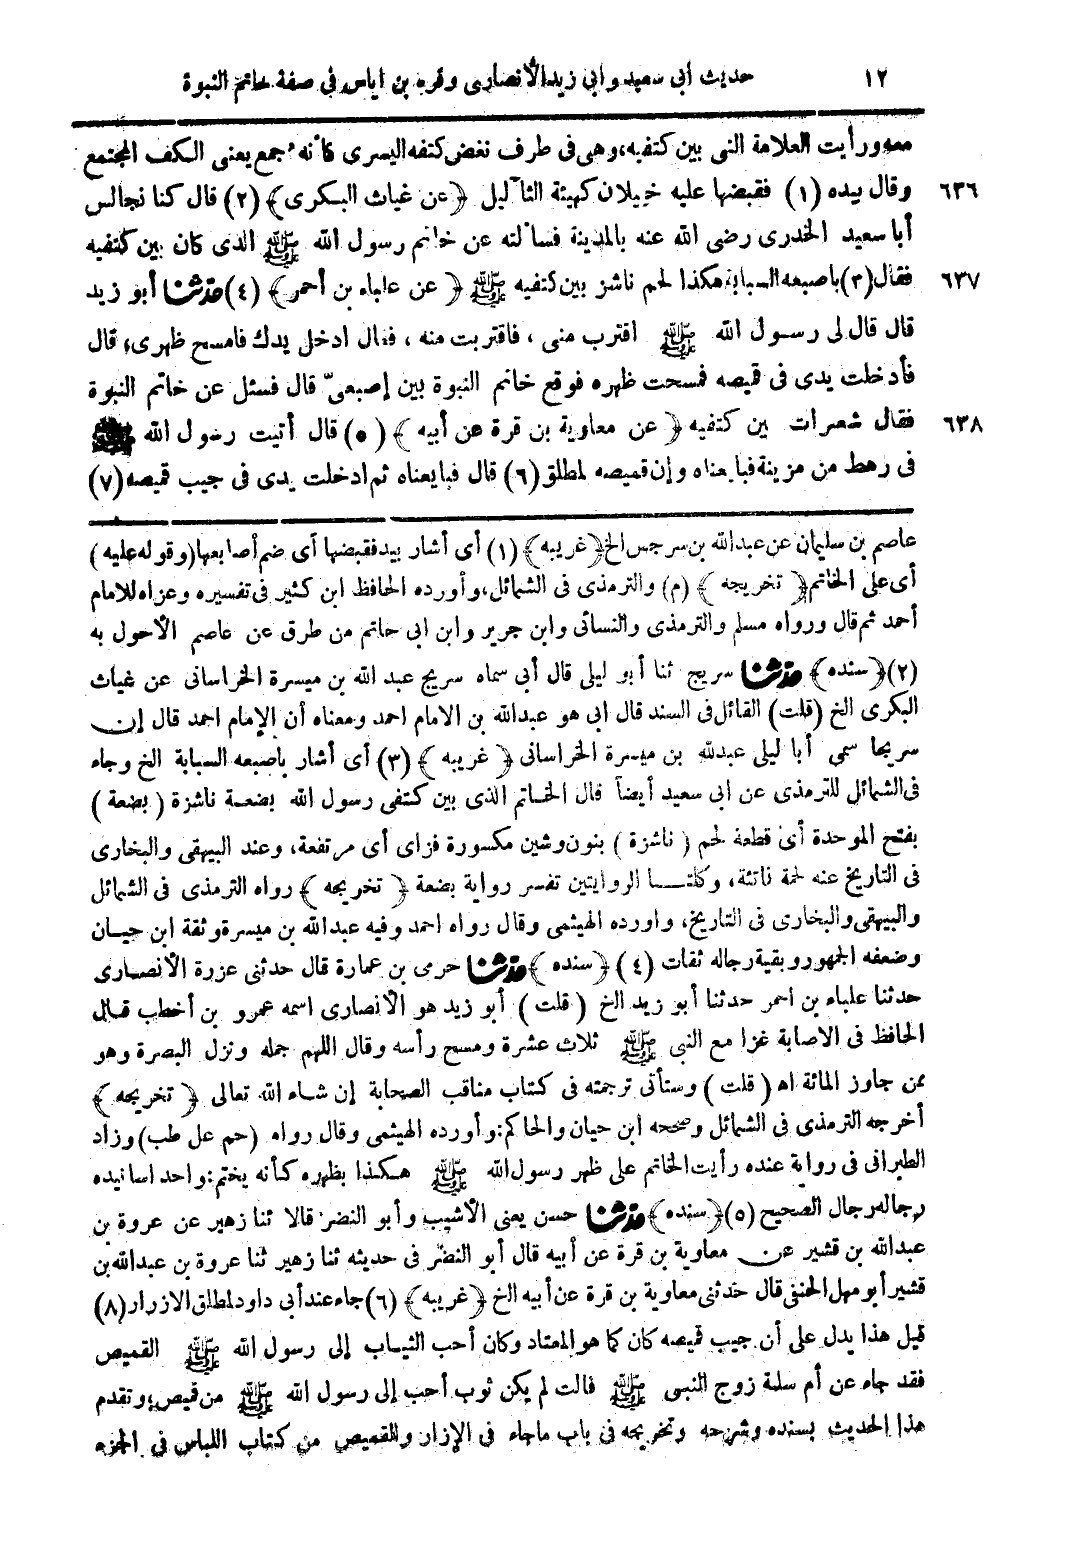 ١٢ حديث أبى سعيد وابى زيد الأنصارى وقره بن اياس فى صفة خاتم النبوة
معه ورأيت العلامة التى بين كتفيه، وهى فى طرف نغض كتفه اليسرى كأنه جمع يعنى الكف المجتمع
٦٣٦ وقال بيده (١) فقبضها عليه خيلان كهيئة الثآليل ﴿عن غياث البكرى﴾ (٢) قال كنا نجالس
أبا سعيد الخدرى رضى الله عنه بالمدينة فسألته عن خاتم رسول الله ﷺ الذى كان بين كتفيه
٦٣٧ فقال (٣) باصبعه السبابة هكذا لحم ناشز بين كتفيه ﷺ ﴿ عن علباء بن أحمر ﴾ (٤) حدثنا أبو زيد
قال قال لى رسول الله ﷺ اقترب منى ، فاقتربت منه ، فقال ادخل يدك فامسح ظهرى، قال
فأدخلت يدى فى قميصه فمسحت ظهره فوقع خاتم النبوة بين إصبعىّ قال فسئل عن خاتم النبوة
٦٣٨ فقال شعرات بين كتفيه ﴿ عن معاوية بن قرة عن أبيه ﴾ (٥) قال أتيت رسول الله ﷺ
فى رهط من مزينة فبايعناه وإن قميصه لمطلق (٦) قال فبايعناه ثم ادخلت يدى فى جيب قميصه (٧)
عاصم بن سليمان عن عبدالله بن سرجس الخ ﴿غريبه﴾ (١) أى أشار بيد فقبضها أى ضم أصابعها (وقوله عليه)
أى على الخاتم ﴿ تخريجه ﴾ (م) والترمذى فى الشمائل، وأورده الحافظ ابن كثير فى تفسيره وعزاه للامام
أحمد ثم قال ورواه مسلم والترمذى والنسائى وابن جرير وابن ابى حاتم من طرق عن عاصم الأحول به
(٢) ﴿سنده﴾ حدثنا سريج ثنا أبو ليلى قال أبى سماه سريج عبد الله بن ميسرة الخراسانى عن غياث
البكرى الخ (قلت) القائل فى السند قال ابى هو عبدالله بن الامام احمد ومعناه أن الإمام احمد قال إن
سريجا سمى أبا ليلى عبدالله بن ميسرة الخراسانى ﴿ غريبه ﴾ (٣) أى أشار باصبعه السبابة الخ وجاء
فى الشمائل للترمذى عن ابى سعيد أيضاً قال الخاتم الذى بين كتفى رسول الله بضعة ناشزة (بضعة )
بفتح الموحدة أى قطعة لحم ( ناشزة ) بنون وشين مكسورة فزاى أى مرتفعة، وعند البيهقى والبخارى
فى التاريخ عنه لحمة ناتئة، وكلتـا الروايتين تفسر رواية بضعة ﴿ تخريجه ﴾ رواه الترمذى فى الشمائل
والبيهقى والبخارى فى التاريخ، واورده الهيثمى وقال رواه احمد وفيه عبدالله بن ميسرة وثقة ابن حبان
وضعفه الجمهور وبقية رجاله ثقات (٤) ﴿ سنده ﴾ حدثنا حرمى بن عمارة قال حدثنى عزرة الأنصارى
حدثنا علباء بن احمر حدثنا أبو زيد الخ ( قلت ) أبو زيد هو الأنصارى اسمه عمرو بن أخطب قال
الحافظ فى الاصابة غزا مع النبى ﷺ ثلاث عشرة ومسح رأسه وقال اللهم جمله ونزل البصرة وهو
ممن جاوز المائة اه ( قلت ) وستأتى ترجمته فى كتاب مناقب الصحابة إن شاء الله تعالى ﴿ تخريجه ﴾
أخرجه الترمذى فى الشمائل وصححه ابن حبان والحاكم: وأورده الهيثمى وقال رواه (حم عل طب) وزاد
الطبرانى فى رواية عنده رأيت الخاتم على ظهر رسول الله ﷺ هكذا بظهره كأنه يختم: واحد اسانيده
رجاله رجال الصحيح (٥) ﴿سنده﴾ حدثنا حسن يعنى الأشيب وأبو النضر قالا ثنا زهير عن عروة بن
عبدالله بن قشير عن معاوية بن قرة عن أبيه قال أبو النضر فى حديثه ثنا زهير ثنا عروة بن عبدالله بن
قشير أبو مهل الحنفى قال حدثنى معاوية بن قرة عن أبيه الخ ﴿غريبه﴾ (٦) جاء عند أبى داود لمطلق الازرار (٨)
قيل هذا يدل على أن جيب قميصه كان كما هو المعتاد وكان أحب الثياب إلى رسول الله ﷺ القميص
فقد جاء عن أم سلمة زوج النبى ﷺ قالت لم يكن ثوب أحب إلى رسول الله ﷺ من قميص، وتقدم
هذا الحديث بسنده وشرحه وتخريجه فى باب ماجاء فى الإزار والقميص من كتاب اللباس فى الجزء